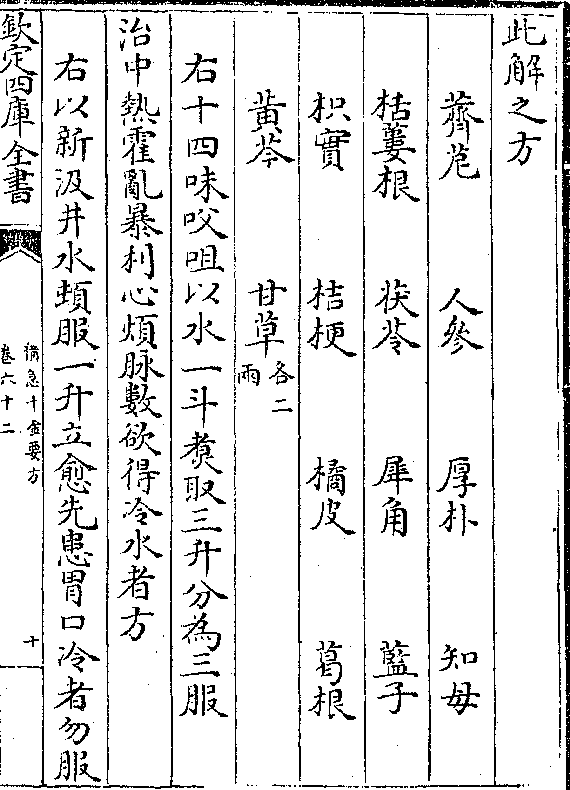 此解之方
薺苨　人參　厚朴　知母
栝蔞根　茯苓　犀角　藍子
枳實　桔梗　橘皮　葛根
黄芩　甘草各二兩
右十四味㕮咀以水一斗煑取三升分為三服
治中熱霍亂暴利心煩脉數欲得冷水者方
右以新汲井水頓服一升立愈先患胃口冷者勿服
欽定四庫全書
備急千金要方
卷六十二
十